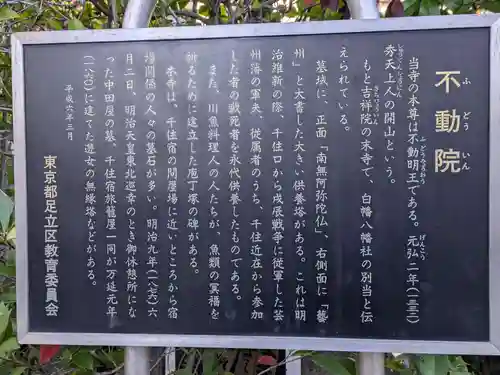 不動院
ふどういん
当寺の本尊は不動明王である。元弘二年(一三三二)
秀天上人の開山という。
もと吉祥院の末寺で、白幡八幡社の別当と伝
えられている。
墓域に、正面「南無阿弥陀仏」、右側面に「藝
州」と大書した大きい供養塔がある。これは明
治維新の際、千住口から戊辰戦争に従軍した芸
州藩の軍夫、従属者のうち、千住近在から参加
した者の戦死者を永代供養したものである。
また、川魚料理人の人たちが、魚類の冥福を
祈るために建立した庖丁塚の碑がある。
本寺は、千住宿の問屋場に近いところから宿
場関係の人々の墓石が多い。明治九年(一八七六)六
月二日、明治天皇東北巡幸のとき御休憩所にな
った中田屋の墓、千住宿旅籠屋一同が万延元年
(一八六〇)に建てた遊女の無縁塔などがある。
平成六年三月
東京都足立区教育委員会